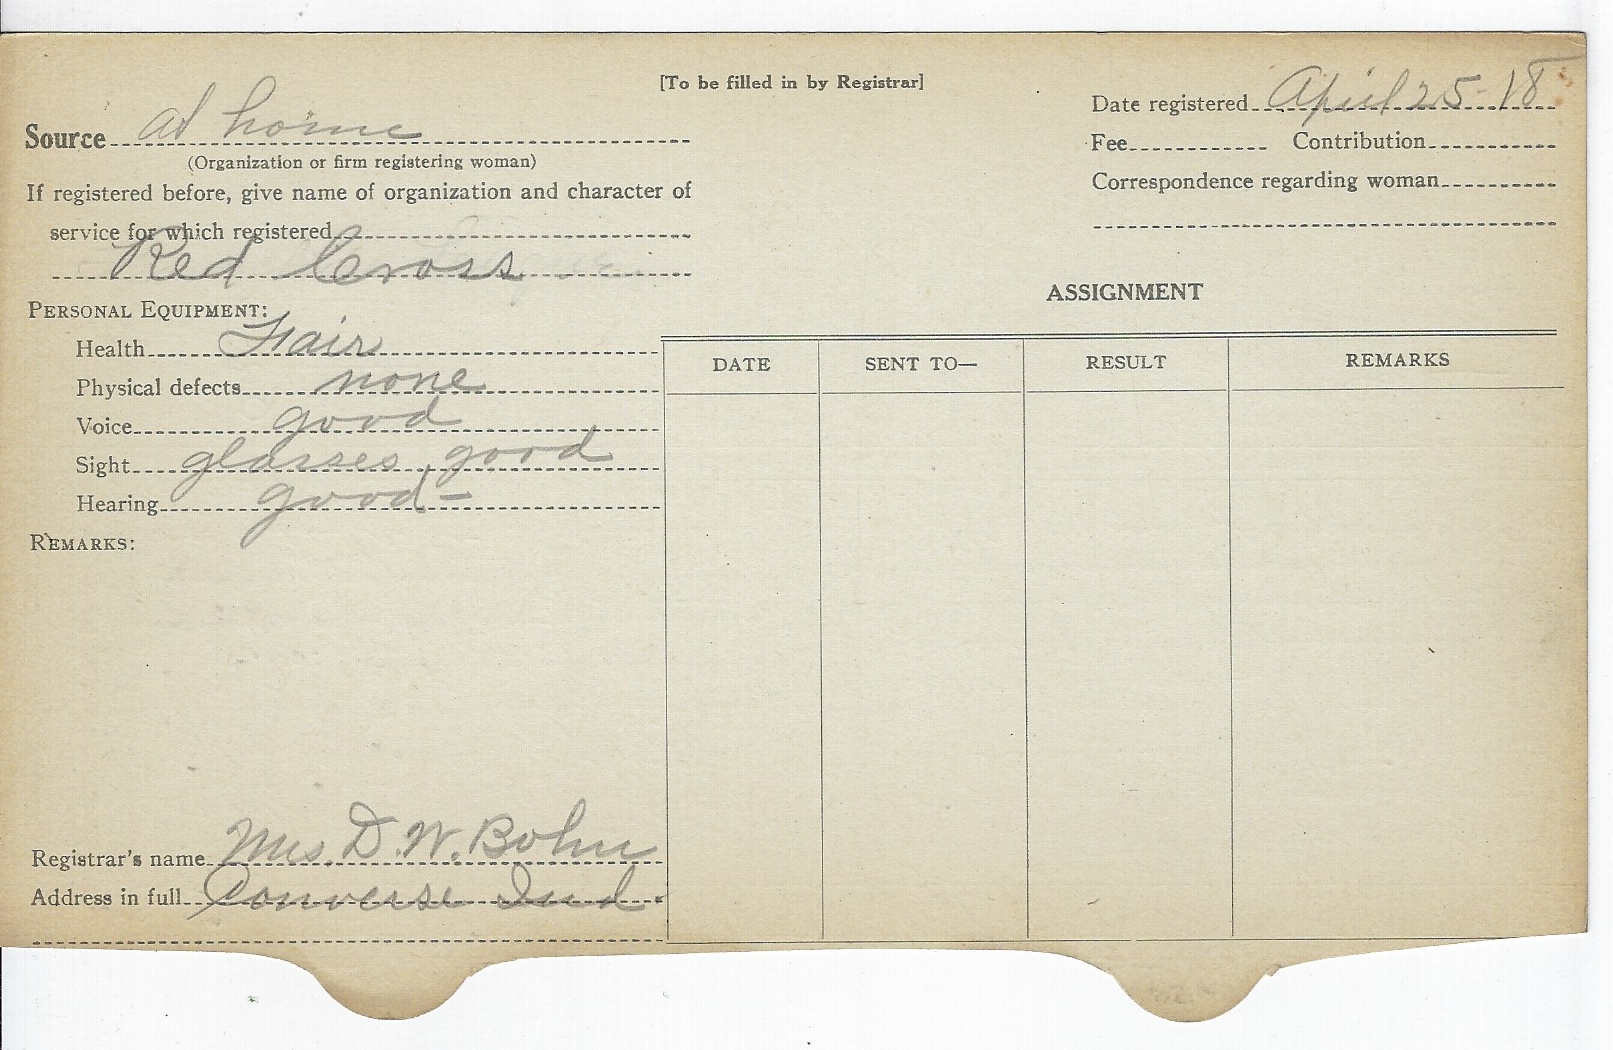 [To be filled in by Registrar]
Source at home
(Organization or firm registering woman)
If registered before, give name of organization and character of
service for which registered
Red Cross
PERSONAL EQUIPMENT:
Health Fair
Physical defects none
Voice good
Sight glasses, good
Hearing good-
REMARKS:
Registrar's name Mrs D. W. Bohn
Address in full Converse Ind.
Date registered April 25-18
Fee Contribution
Correspondence regarding woman
ASSIGNMENT
DATE SENT TO— RESULT REMARKS